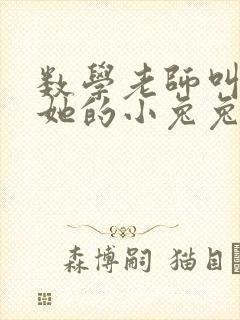 数學老師叫
她的小兔兔
森博嗣 猫目